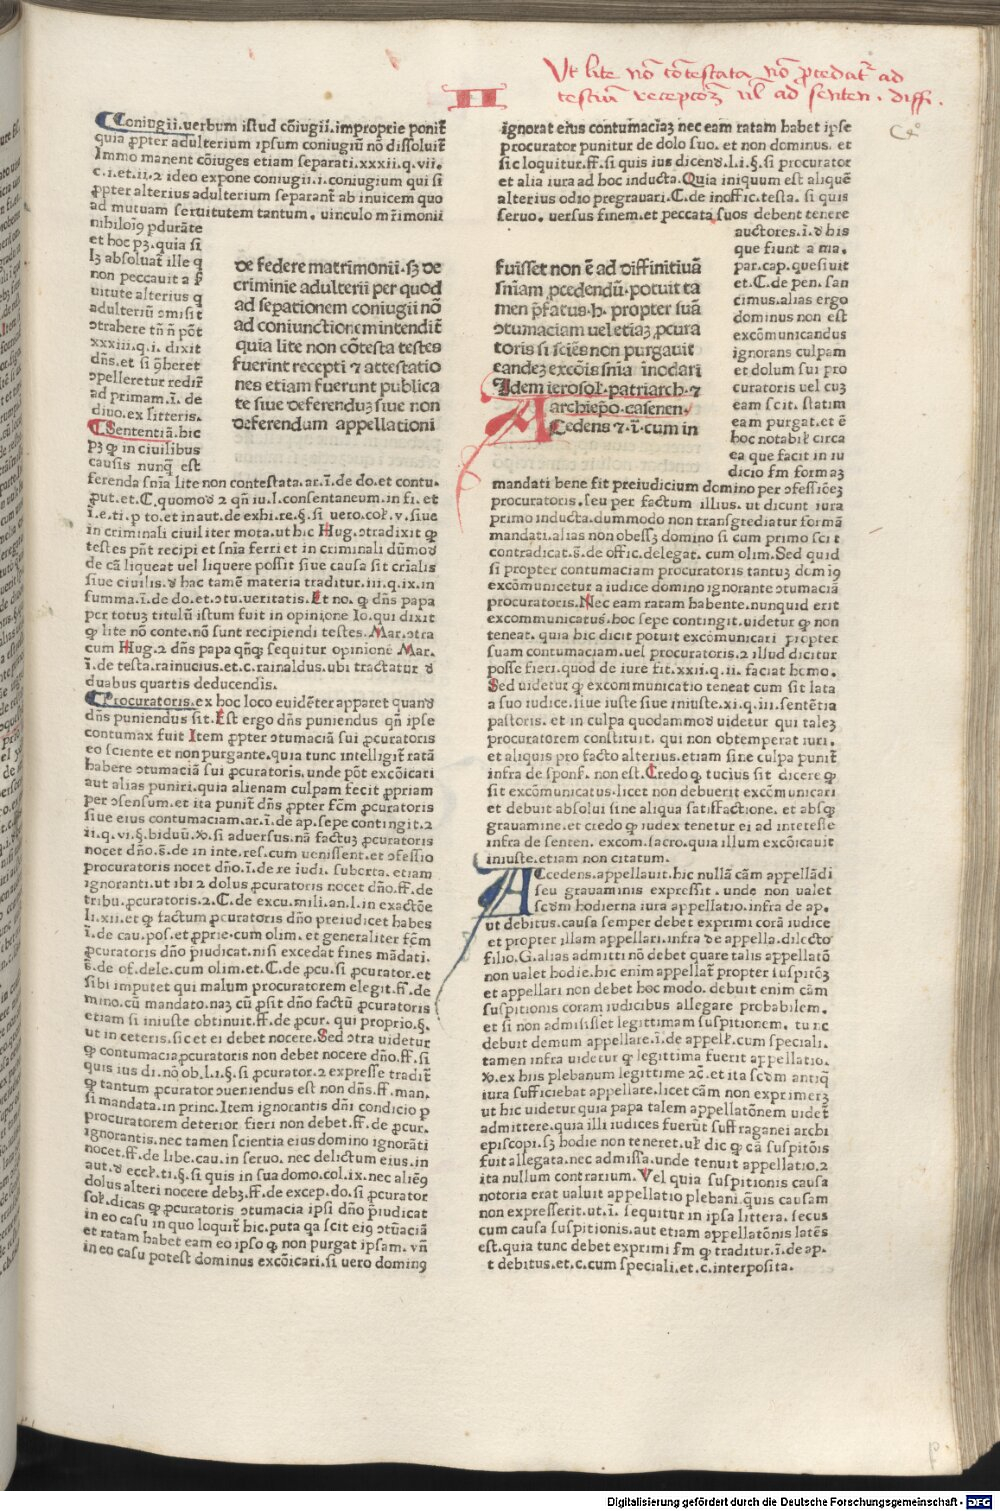 II
Ut lite nõ cõtestata nõ ꝓcedat᷑ ad
testiũ recepcõꝫ ul̃ ad senten . diffi .
Coniugii.uerbum istud cõiugii.improprie ponit᷑
quia ꝓpter adulterium ipsum coniugiũ nõ dissoluit᷑
Immo manent cõiuges etiam separati.xxxii.q.vii.
c.i.et.ii.2 ideo expone coniugii.i.coniugium qui si
ꝓpter alterius adulterium separant᷑ ab inuicem quo
ad mutuam seruitutem tantum. uinculo mr̃imonii
nibiloiꝯ ꝑdurãte
et hoc pꝫ.quia si
lꝫ absoluat᷑ ille q
non peccauit a ꝑ
uitute alterius q
adulteriũ ↄmisit
ↄtrabere tñ ñ põt
xxxiii.q.i. dixit
dñs.et si ꝗberet
ↄpelleretur redir̃
ad primam.ĩ. de
diuo.ex litteris.
Sententiã.hic
pꝫ ꝙ in ciuilibus
causis nunqꝫ est
de federe matrimonii.sꝫ de
criminie adulterii per quod
ad sepationem coniugii nõ
ad coniunctionem intendit᷑
quia lite non cõtesta testes
fuerint recepti ⁊ attestatio
nes etiam fuerunt publica
te siue deferenduꝫ siue non
deferendum appellationi
ferenda sñia lite non contestata.ar.ĩ.de do.et contu.
ꝓut.et.C.quomođ 2 qñ iu.l.consentaneum.in fi.et
ĩ.e.ti.p to.et in aut.de exhi.re.§.si uero.col̃.v.siue
in criminali ciuiliter mota.ut hic Hug.ↄtradixit ꝙ
testes pñt recipi et sñia ferri et in criminali dũmođ
de cã liqueat uel liquere possit siue causa sit crĩalis
siue ciuilis.đ hac tamẽ materia traditur.iii.q.ix.in
summa.ĩ.de do.et ↄtu.ueritatis. Et no.ꝙ dñs papa
per totuꝫ titulũ istum fuit in opinione Io.qui dixit
ꝙ lite nõ conte.nõ sunt recipiendi testes.Mar.ↄtra
cum Hug.2 dñs papa qñqꝫ sequitur opinionẽ Mar.
ĩ.de testa.rainucius.et.c.rainaldus.ubi tractatur đ
duabus quartis deducendis.
Procuratoris.ex hoc loco euidẽter apparet quanđ
dñs puniendus sit.Est ergo dñs puniendus qñ ipse
contumax fuit Item ꝓpter ↄtumaciã sui ꝓcuratoris
eo sciente et non purgante.quia tunc intelligit᷑ ratã
habere ↄtumaciã sui ꝓcuratoris.unde põt excõicari
aut alias puniri.quia alienam culpam fecit ꝓpriam
per ↄsensum.et ita punit᷑ dñs ꝓpter fcm̃ ꝓcuratoris
siue eius contumaciam.ar.ĩ.de ap.sepe contingit.2
ii.q.vi.§.biduũ.ꝟ.si aduersus.nã factuꝫ ꝓcuratoris
nocet dño.s̃.de in inte.res.cum uenissent.et ↄfessio
procuratoris nocet dño.ĩ.de re iudi. suborta. etiam
ignoranti.ut ibi 2 dolus ꝓcuratoris nocet dño.ff.de
tribu.ꝓcuratoris.2.C.de excu.mili.an.l.in exactõe
li.xii.et ꝙ factum ꝓcuratoris dño preiudicet habes
ĩ.de cau.pos.et ꝓprie.cum olim.et generaliter fcm̃
ꝓcuratoris dño p̃iudicat.nisi excedat fines mãdati.
s̃.de of.dele.cum olim.et.C.de ꝓcu.si ꝓcurator.et
sibi imputet qui malum procuratorem elegit.ff.de
mino.cũ mandato.naꝫ cũ ꝓsit dño factũ ꝓcuratoris
etiam si iniuste obtinuit.ff.de ꝓcur. qui proprio.§.
ut in ceteris.sic et ei debet nocere.Sed ↄtra uidetur
ꝙ contumacia ꝓcuratoris non debet nocere dño.ff.si
quis ius di.nõ ob.l.i.§.si ꝓcurator.2 expresse tradit᷑
ꝙ tantum ꝓcurator ↄueniendus est non dñs.ff.man.
si mandata.in princ.Item ignorantis dñi condicio ꝑ
procuratorem deterior fieri non debet.ff.de ꝓcur.
ignorantis.nec tamen scientia eius domino ignorãti
nocet.ff.de libe.cau.in seruo. nec delictum eius.in
aut.đ eccl̃.ti.§.si quis in sua domo.col.ix.nec alieꝯ
dolus alteri nocere debꝫ.ff.de excep.do.si ꝓcurator
sol̃.dicas ꝙ ꝓcuratoris ↄtumacia ipsi dño p̃iudicat
in eo casu in quo loquit᷑ hic.puta qa scit eiꝯ ↄtũaciã
et ratam habet eam eo ipso ꝙ non purgat ipsam. vñ
in eo casu potest dominus excõicari.si uero dominꝯ
ignorat eius contumaciaꝫ nec eam ratam habet ipse
procurator punitur de dolo suo. et non dominus. et
sic loquitur.ff.si quis ius dicenđ.l.i.§.si procurator
et alia iura ad hoc inducta.Quia iniquum est aliquẽ
alterius odio pregrauari.C.de inoffic.testa. si quis
seruo. versus finem.et peccata suos debent tenere
auctores.ĩ.đ his
que fiunt a ma.
par.cap.quesiuit
et.C.de pen.san
cimus.alias ergo
dominus non est
excõmunicandus
ignorans culpam
et dolum sui pro
curatoris uel cuꝫ
eam scit. statim
eam purgat.et ẽ
hoc notabil̃ circa
ea que facit in iu
dicio fm formaꝫ
fuisset non ẽ ad diffinitiuã
sñiam ꝓcedendũ.potuit ta
men p̃fatus.h. propter suã
ↄtumaciam uel etiaꝫ ꝓcura
toris si sciẽs non purgauit
eandeꝫ excõis sñia inodari
Idem ierosol̃.patriarch.⁊
archiep̃o.casenen.
ACcedens ⁊.ĩ.cum in
mandati bene fit preiudicium domino per ↄfessiõeꝫ
procuratoris.seu per factum illius. ut dicunt iura
primo inducta.dummodo non transgrediatur formã
mandati.alias non obesꝫ domino si cum primo scit
contradicat.s̃.de offic.delegat. cum olim.Sed quid
si propter contumaciam procuratoris tantuꝫ domiꝯ
excõmunicetur a iudice domino ignorante ↄtumaciã
procuratoris.Nec eam ratam habente.nunquid erit
excommunicatus.hoc sepe contingit.uidetur ꝙ non
teneat. quia hic dicit potuit excõmunicari propter
suam contumaciam.uel procuratoris.2 illud dicitur
posse fieri.quod de iure fit.xxii.q.ii. faciat homo.
Sed uidetur ꝙ excommunicatio teneat cum sit lata
a suo iudice.siue iuste siue iniuste.xi.q.iii.sentẽtia
pastoris. et in culpa quodammođ uidetur qui taleꝫ
procuratorem constituit. qui non obtemperat iuri.
et aliquis pro facto alterius.etiam sine culpa punit᷑
infra de sponſ. non est.Credo ꝙ tucius sit dicere ꝙ
sit excõmunicatus.licet non debuerit excõmunicari
et debuit absolui sine aliqua satisfactione. et absqꝫ
grauamine.et credo ꝙ iudex tenetur ei ad interesse
infra de senten. excom.sacro.quia illum excõicauit
iniuste.etiam non citatum.
ACcedens.appellauit.hic nullã cãm appellãdi
seu grauaminis expressit. unde non ualet
scđm hodierna iura appellatio.infra de ap.
ut debitus.causa semper debet exprimi corã iudice
et propter illam appellari.infra de appella.dilecto
filio.G.alias admitti nõ debet quare talis appellatõ
non ualet hodie.hic enim appellat᷑ propter suspitõꝫ
et appellari non debet hoc modo. debuit enim cãm
suspitionis coram iudicibus allegare probabilem.
et si non admisisset legittimam suspitionem. tunc
debuit demum appellare.ĩ.de appel̃.cum speciali.
tamen infra uidetur ꝙ legittima fuerit appellatio.
ꝟ.ex hiis plebanum legittime 2c̃.et ita scđm antiqͣ
iura sufficiebat appellare.licet cãm non exprimerꝫ
ut hic uidetur quia papa talem appellatõnem uidet᷑
admittere.quia illi iudices fuerũt suffraganei archi
episcopi.sꝫ hodie non teneret.ul̃ dic ꝙ cã suspitõis
fuit allegata.nec admissa.unde tenuit appellatio.2
ita nullum contrarium. Vel quia suspitionis causa
notoria erat ualuit appellatio plebani.quis causam
non expresserit.ut.ĩ. sequitur in ipsa littera.secus
cum causa suspitionis.aut etiam appellatõnis latẽs
est.quia tunc debet exprimi fm ꝙ traditur.ĩ.de ap-
t debitus.et.c.cum speciali.et.c.interposita.
Digitalisierung gefördert durch die Deutsche Forschungsgemeinschaft - DFG